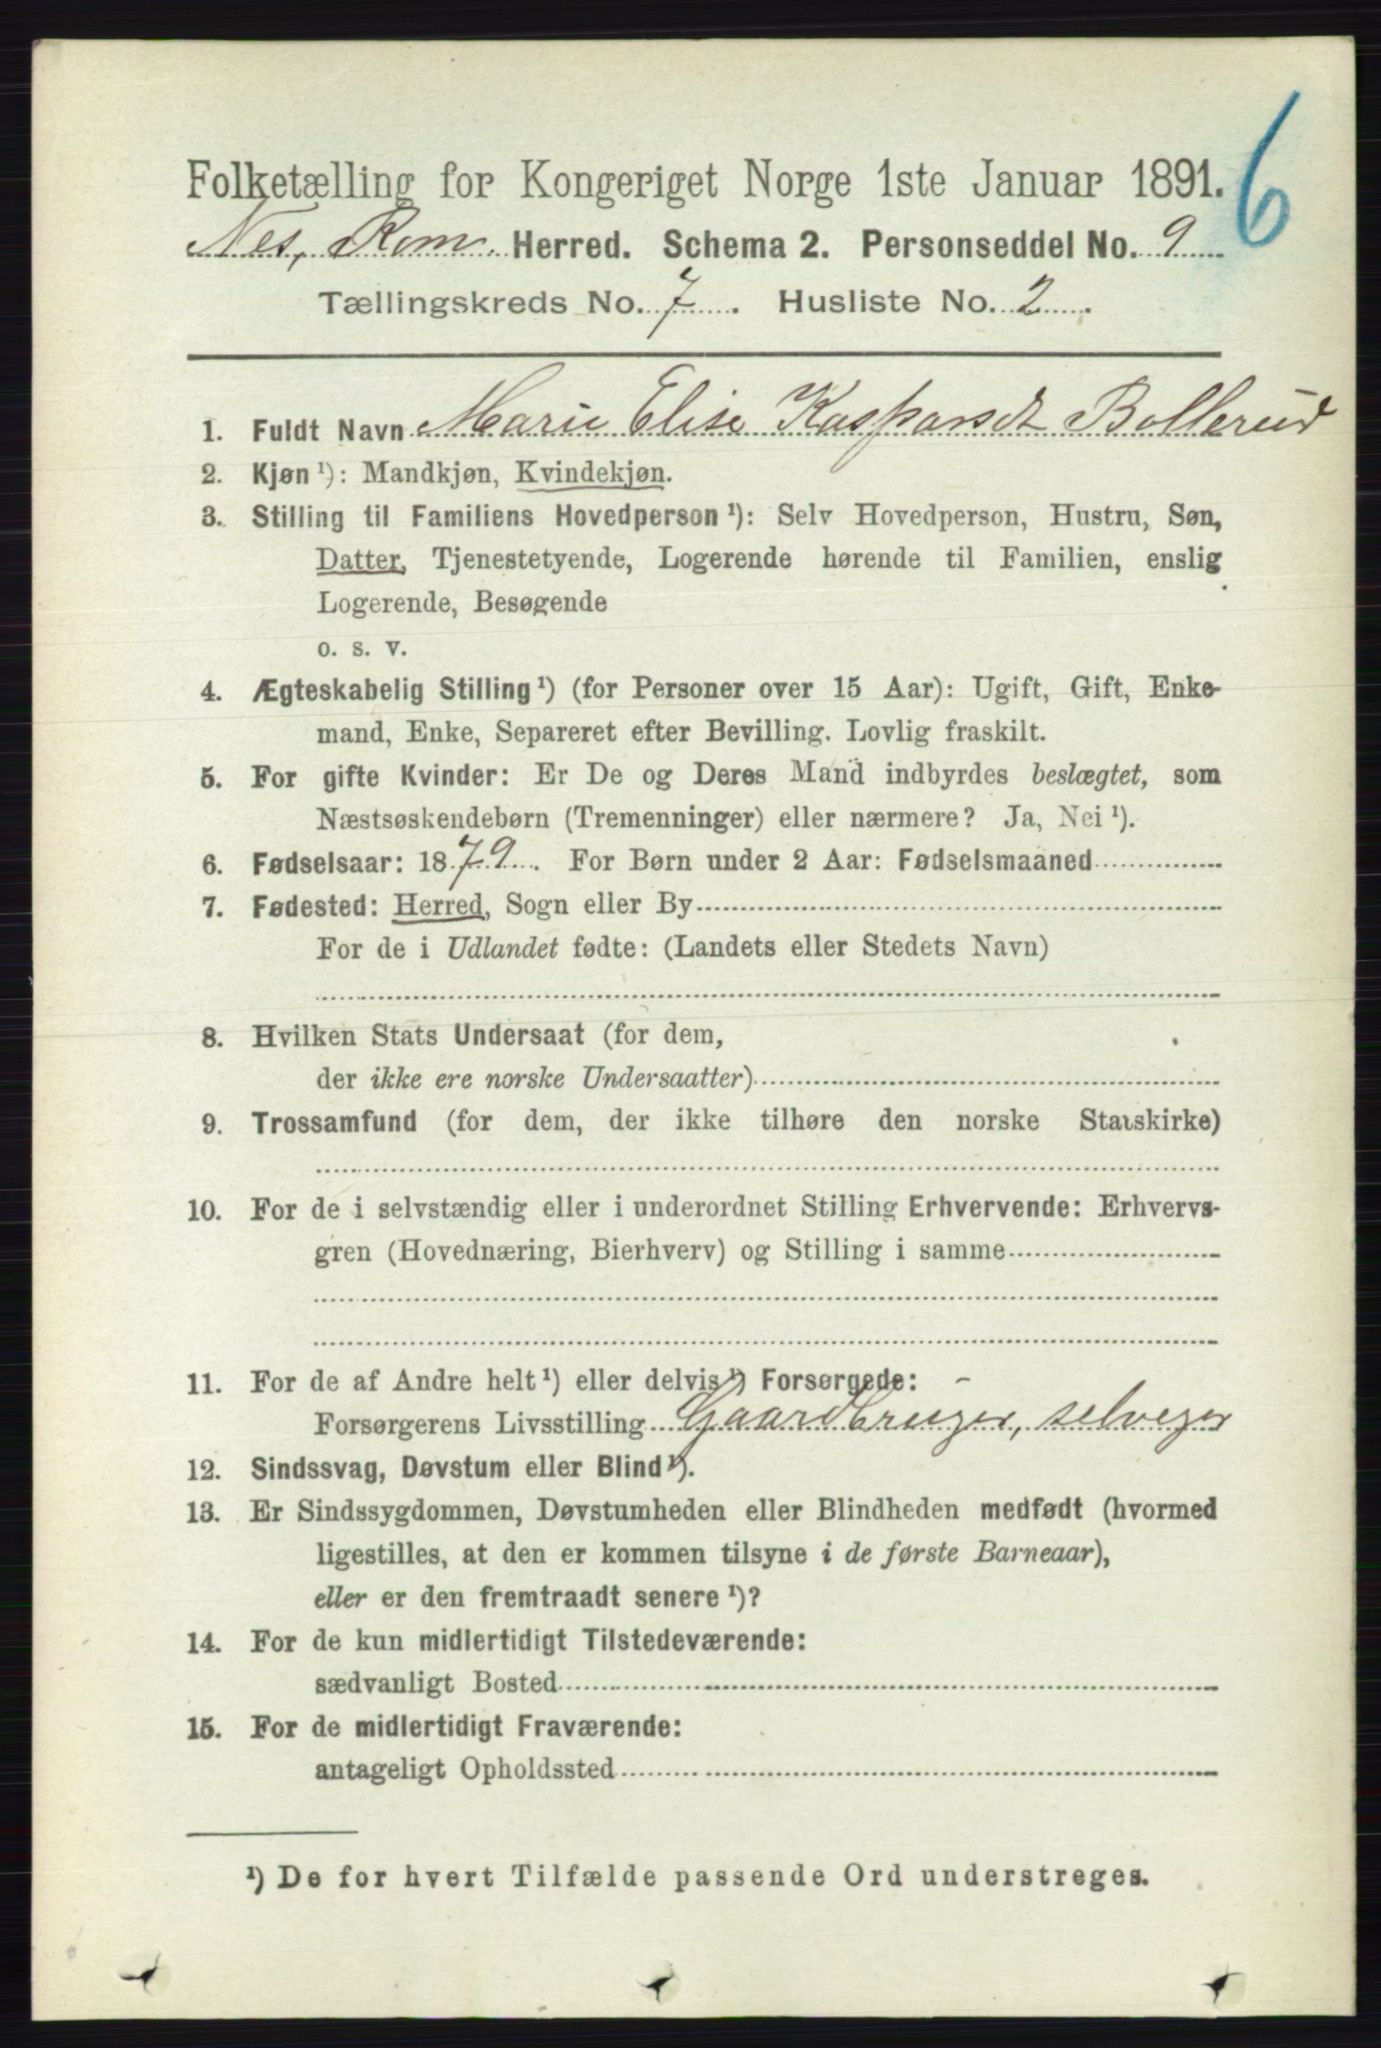 6
Folketælling for Kongeriget Norge 1ste Januar 1891.
Nes, Rom. Herred. Schema 2. Personseddel No. 9
Tællingskreds No. 7. Husliste No. 2.
1. Fuldt Navn Marie Elise Kasparsdt Bollerud
2. Kjøn ¹): Mandkjøn, Kvindekjøn.
3. Stilling til Familiens Hovedperson ¹): Selv Hovedperson, Hustru, Søn,
Datter, Tjenestetyende, Logerende hørende til Familien, enslig
Logerende, Besøgende
o. s. v.
4. Ægteskabelig Stilling ¹) (for Personer over 15 Aar): Ugift, Gift, Enke-
mand, Enke, Separeret efter Bevilling. Lovlig fraskilt.
5. For gifte Kvinder: Er De og Deres Mand indbyrdes beslægtet, som
Næstsøskendebørn (Tremenninger) eller nærmere? Ja, Nei ¹).
6. Fødselsaar: 1879. For Børn under 2 Aar: Fødselsmaaned
7. Fødested: Herred, Sogn eller By
For de i Udlandet fødte: (Landets eller Stedets Navn)
8. Hvilken Stats Undersaat (for dem,
der ikke ere norske Undersaatter)
9. Trossamfund (for dem, der ikke tilhøre den norske Statskirke)
10. For de i selvstændig eller i underordnet Stilling Erhvervende: Erhvervs-
gren (Hovednæring, Bierhverv) og Stilling i samme
11. For de af Andre helt ¹) eller delvis ¹) Forsørgede: -
Forsørgerens Livsstilling Gaardbruger, selveger
12. Sindssvag, Døvstum eller Blind ¹).
13. Er Sindssygdommen, Døvstumheden eller Blindheden medfødt (hvormed
ligestilles, at den er kommen tilsyne i de første Barneaar),
eller er den fremtraadt senere ¹)?
14. For de kun midlertidigt Tilstedeværende:
sædvanligt Bosted
15. For de midlertidigt Fraværende:
antageligt Opholdssted
¹) De for hvert Tilfælde passende Ord understreges.